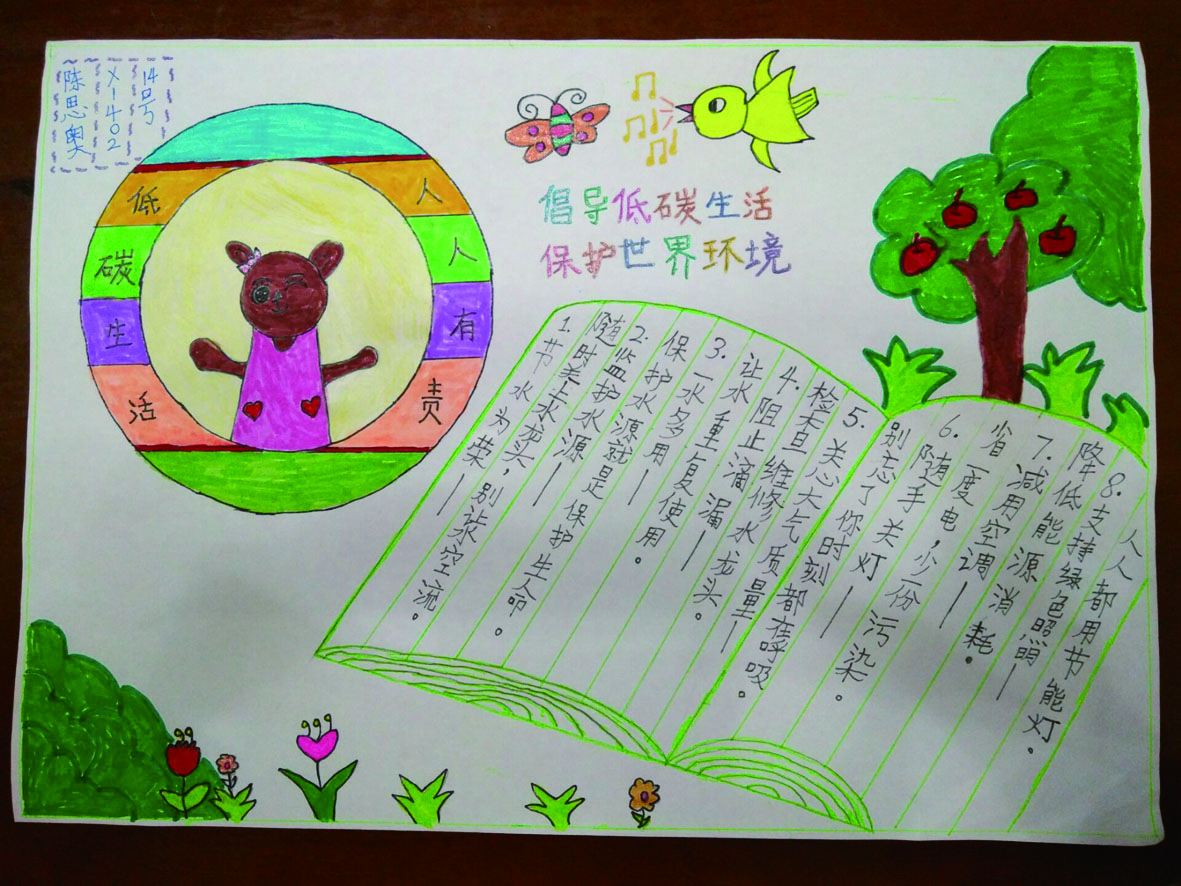 陈思奥
X1402
14号
低碳生活
人人有责
倡导低碳生活
保护世界环境
1.节水为荣——
随时关上水龙头,别让水空流。
2.监护水源——
保护水源就是保护生命。
3.一水多用——
让水重复使用。
4.阻止滴漏——
检查维修水龙头。
5.关心大气质量——
别忘了你时刻都在呼吸。
6.随手关灯——
省一度电,少一份污染。
7.减用空调——
降低能源消耗。
8.支持绿色照明——
人人都用节能灯。